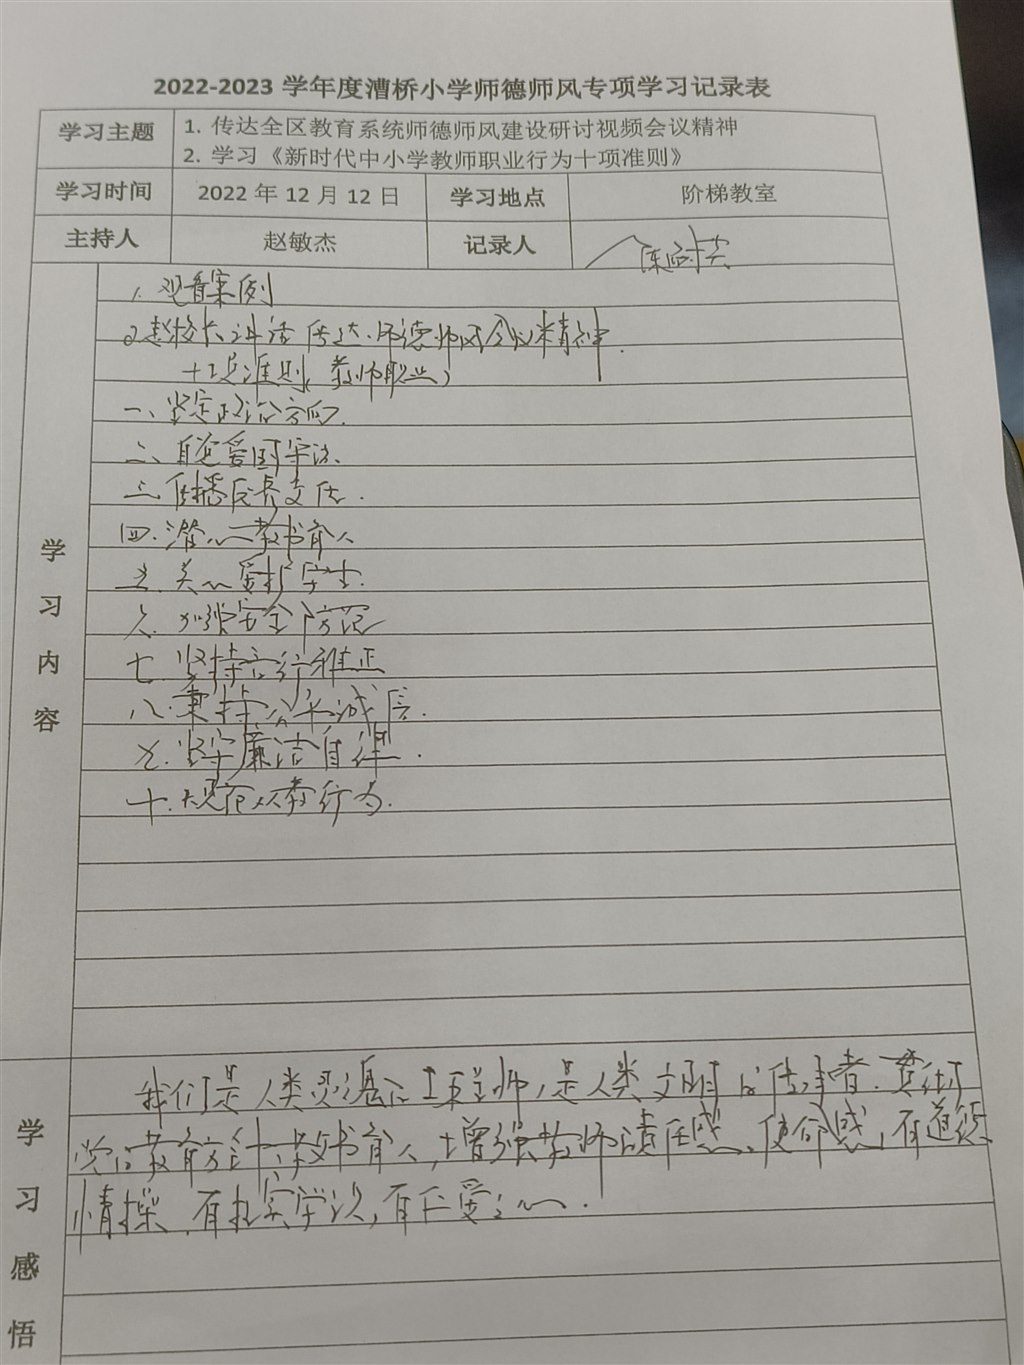 2022-2023 学年度漕桥小学师德师风专项学习记录表
学习主题
1. 传达全区教育系统师德师风建设研讨视频会议精神
2. 学习《新时代中小学教师职业行为十项准则》
学习时间 2022 年 12 月 12 日 学习地点 阶梯教室
主持人 赵敏杰 记录人
学习内容
1. 观看案例
2 赵校长讲话 传达师德师风会议精神.
十项准则(教师职业)
一、坚定政治方向.
二、自觉爱国守法.
三、传播优秀文化.
四.潜心教书育人
五.关心爱护学生.
六.加强安全防范
七 坚持言行雅正
八.秉持公平诚信.
九.坚守廉洁自律.
十.规范从教行为.
学习感悟
我们是人类灵魂的工程师,是人类文明的传承者.贯彻
党的教育方针,教书育人,增强教师责任感、使命感,有道德
情操,有扎实学识,有仁爱之心.